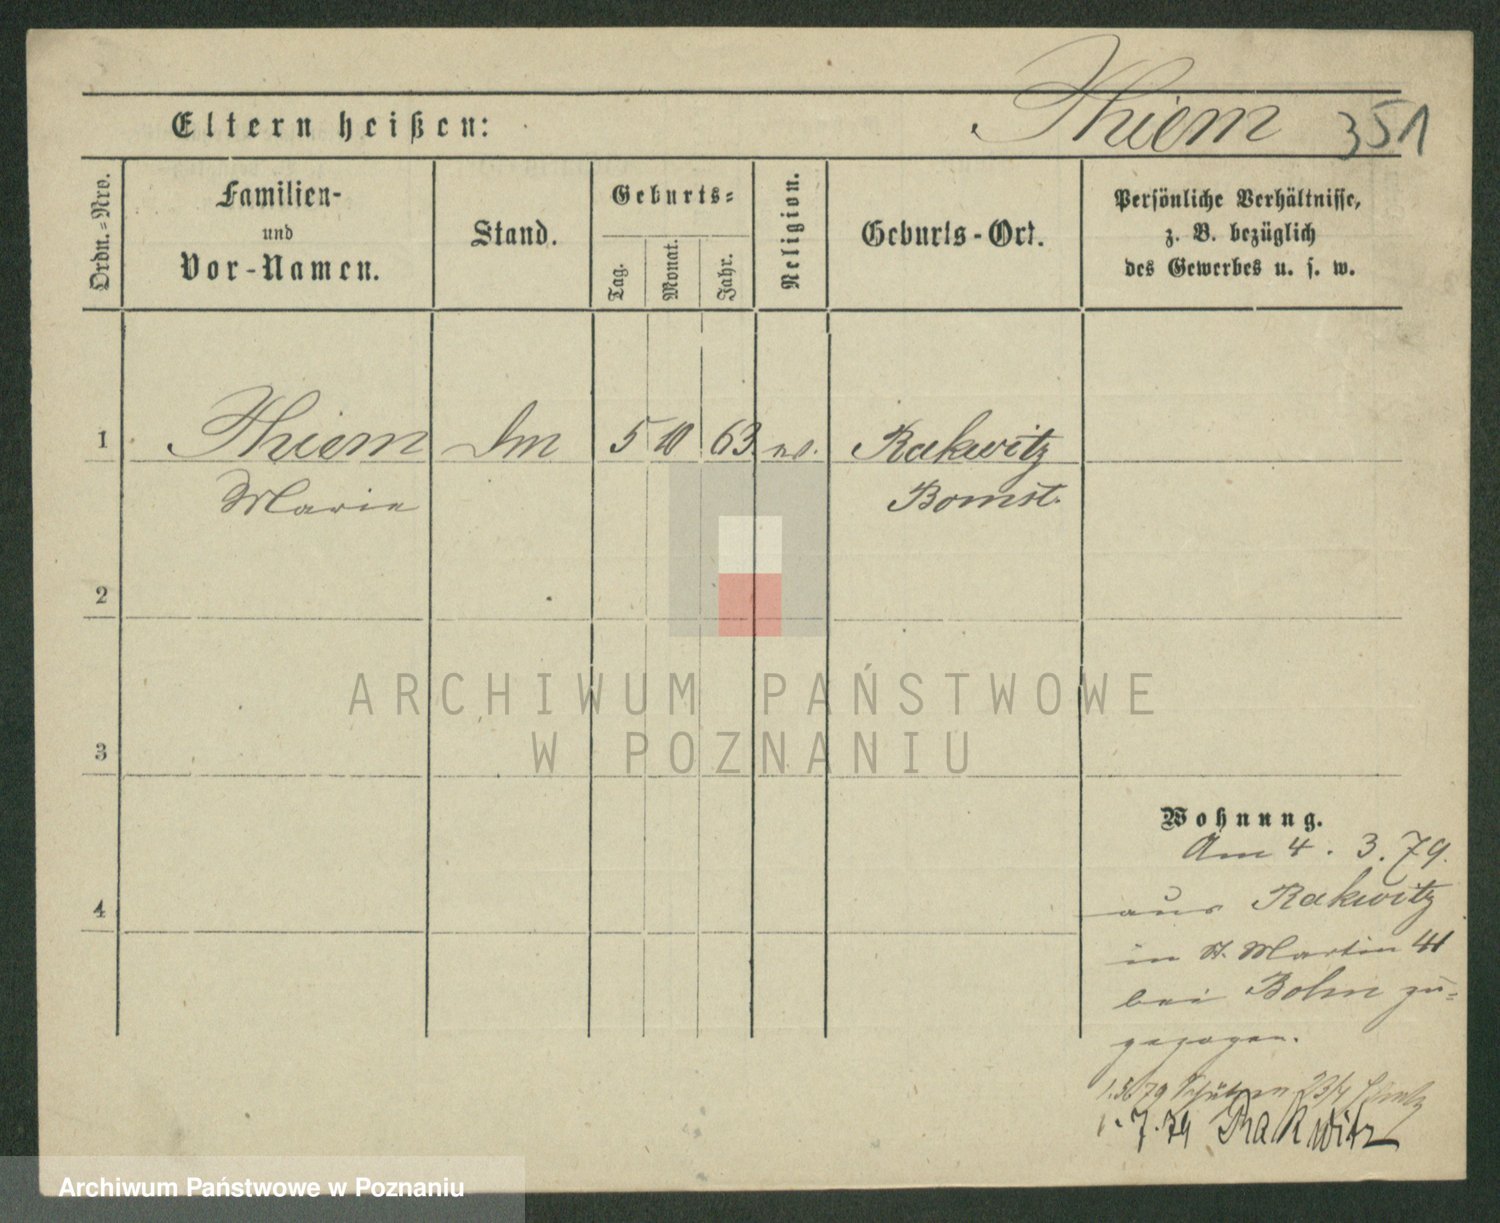 Thiem 351
Eltern heißen:
Ordn.-Nro.
Familien-
und
Vor-Namen.
Stand.
Geburts-
Tag.
Monat.
Jahr.
Religion.
Geburts-Ort.
Persönliche Verhältnisse,
z. B. bezüglich
des Gewerbes u. s. w.
1 Thiem 5 10 63 Rakwitz
Marie Bomst.
2
3
4
Wohnung.
Am 4. 3. 79.
aus Rakwitz
in St. Martin 41
bei Bohn zu-
gezogen.
1.5.79 Schützen 23/4
1.7.79 Rakwitz
ARCHIWUM PAŃSTWOWE
W POZNANIU
Archiwum Państwowe w Poznaniu